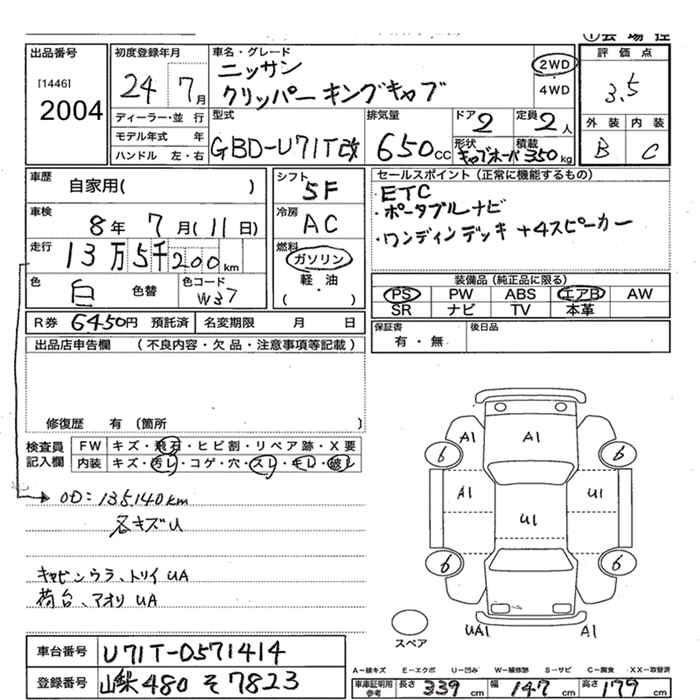 ①会場控
出品番号
[1446]
2004
初度登録年月
24 7月
ディーラー・並 行
モデル年式 年
ハンドル 左・右
車名・グレード
ニッサン
クリッパー キングキャブ
2WD
4WD
型式
GBD-U71T改
排気量
650cc
ドア 2
定員 2人
形状
積載 350kg
評価点
3.5
外装 内装
B C
車歴
自家用( )
車検
8年 7月(11日)
走行
13万5千200km
色 白 色替 色コード W37
シフト 5F
冷房 AC
燃料
ガソリン
軽・油
( )
セールスポイント(正常に機能するもの)
・ETC
・ポータブルナビ
・ワンディンデッキ +4スピーカー
装備品(純正品に限る)
PS PW ABS エアB AW
SR ナビ TV 本革
R券 6450円 預託済 名変期限 月 日
保証書 有・無 後日品
出品店申告欄 (不良内容・欠品・注意事項等記載)
修復歴 有 〔箇所 〕
検査員
記入欄
FW キズ・飛石・ヒビ割・リペア跡・X要
内装 キズ・汚レ・コゲ・穴・スレ・キレ・破レ
OD:135,140km
各キズU
キャビンウラ、トリイUA
荷台、アオリUA
A1 A1
6 6
A1 U1
U1
6 6
UA1 A1
スペア
車台番号 U71T-0571414
登録番号 480 そ 7823
A-線キズ E-エクボ U-凹み W-補修跡 S-サビ C-腐食 XX-取替済
車庫証明用
参考
長さ 339cm 幅 147cm 高さ 179cm